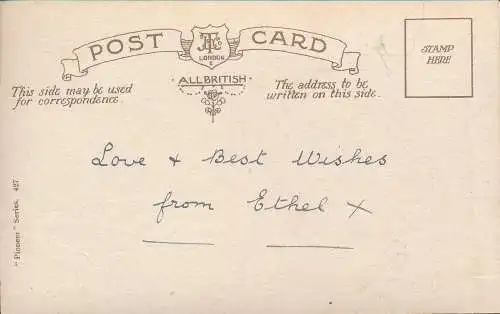 POST CARD
LONDON
E
ALL BRITISH
STAMP
HERE
This side may be used
for correspondence.
The address to be
written on this side.
Love & Best Wishes
from Ethel X
"Pioneer" Series. 427